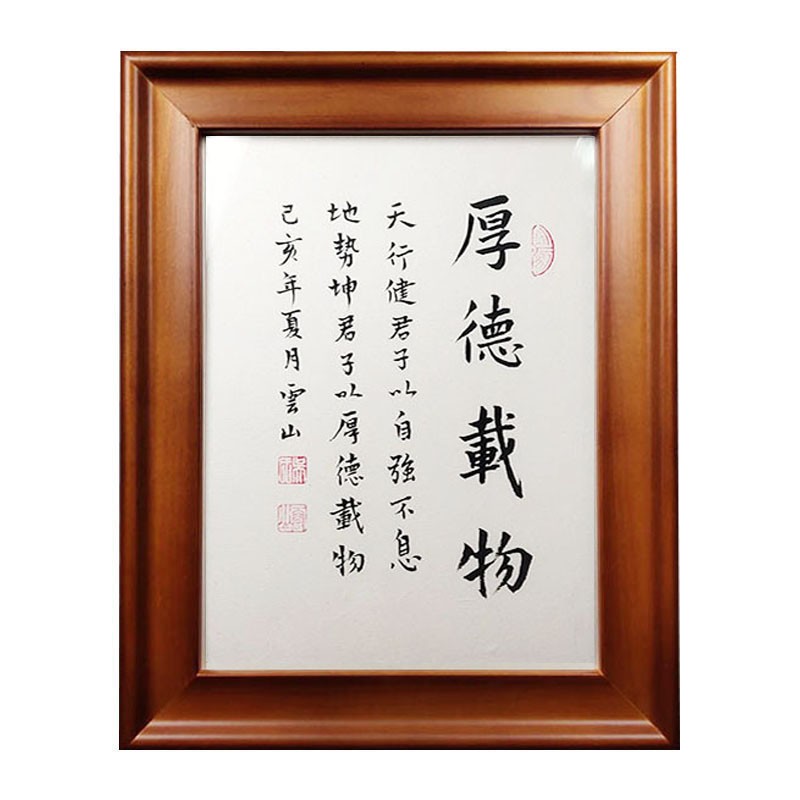 厚德載物
天行健君子以自強不息
地势坤君子以厚德載物
己亥年夏月雲山